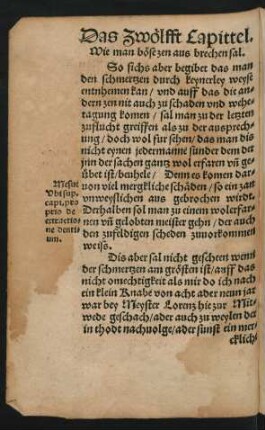 Das Zwölfft Capittel.
Wie man bösz zen aus brechen sal.
So sichs aber begibet das man
den schmertzen durch keynerley weysz
entnhemen kan / vnd auff das die an-
dern zen nit auch zu schaden vnd wehe-
tagung komen / sal man zu der letzten
zuflucht greiffen als zu der ausprech-
ung / doch wol fur sehen / das man dis
nicht eynen jedermanne sunder dem der
jnn der sachen gantz wol erfaren vñ ge-
übet ist / beuhele / Denn es komen dar-
von viel mergkliche schäden / so ein zan
vnweyslichen aus gebrochen wirdt.
Derhalben sol man zu einem wol erfar-
nen vñ gelobten meister gehn / der auch
den zufeldigen scheden zuuorkommen
weiss.
Mesue
vbi sup.
capi. pro
prio de
eradicatio
ne dentiu
um.
Dis aber sal nicht geschehen wenn
der schmertzen am grösten ist / auff das
nicht omechtigkeit als mir do ich nach
ein klein Knabe von acht ader neun jar
war bey Meyster Lorentz hie zur Mit-
wede geschach / ader auch zu weylen der
in thodt nachuolge / ader sunst ein mer-
cklich